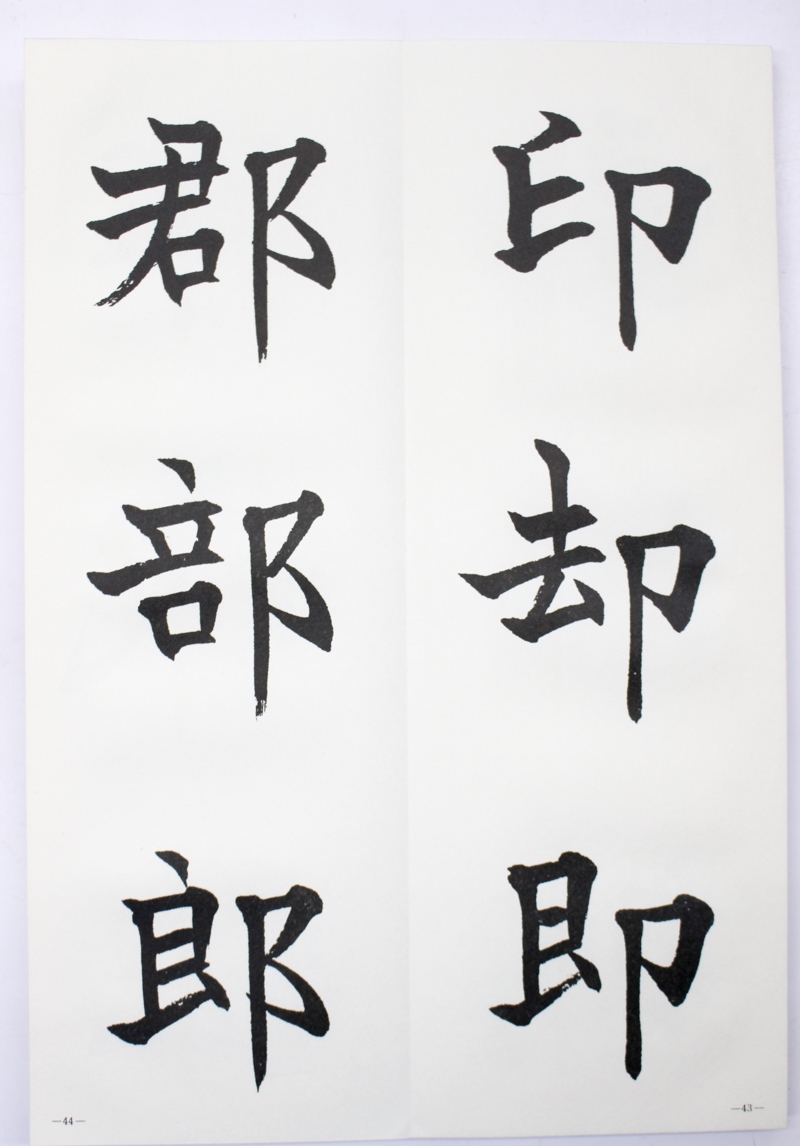 印
却
即
—43—
郡
部
郎
—44—